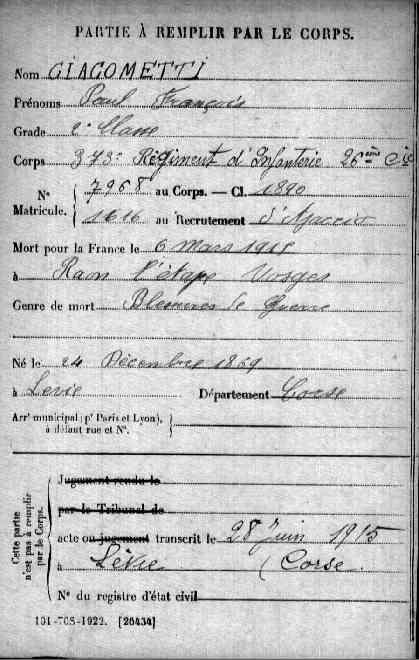 PARTIE À REMPLIR PAR LE CORPS.
Nom GIACOMETTI
Prénoms Paul François
Grade 2e Classe
Corps 373e Régiment d'Infanterie 26ème Cie
N° Matricule. 7968 au Corps. — Cl. 1890
1616 au Recrutement d'Ajaccio
Mort pour la France le 6 Mars 1915
à Raon l'étape Vosges
Genre de mort Blessures de Guerre
Né le 24 Décembre 1869
à Levie Département Corse
Arrt municipal (pr Paris et Lyon),
à défaut rue et N°.
Cette partie n'est pas à remplir par le Corps.
Jugement rendu le
par le Tribunal de
acte ou jugement transcrit le 28 Juin 1915
à Lévie (Corse.
N° du registre d'état civil
101-708-1922. [26434]